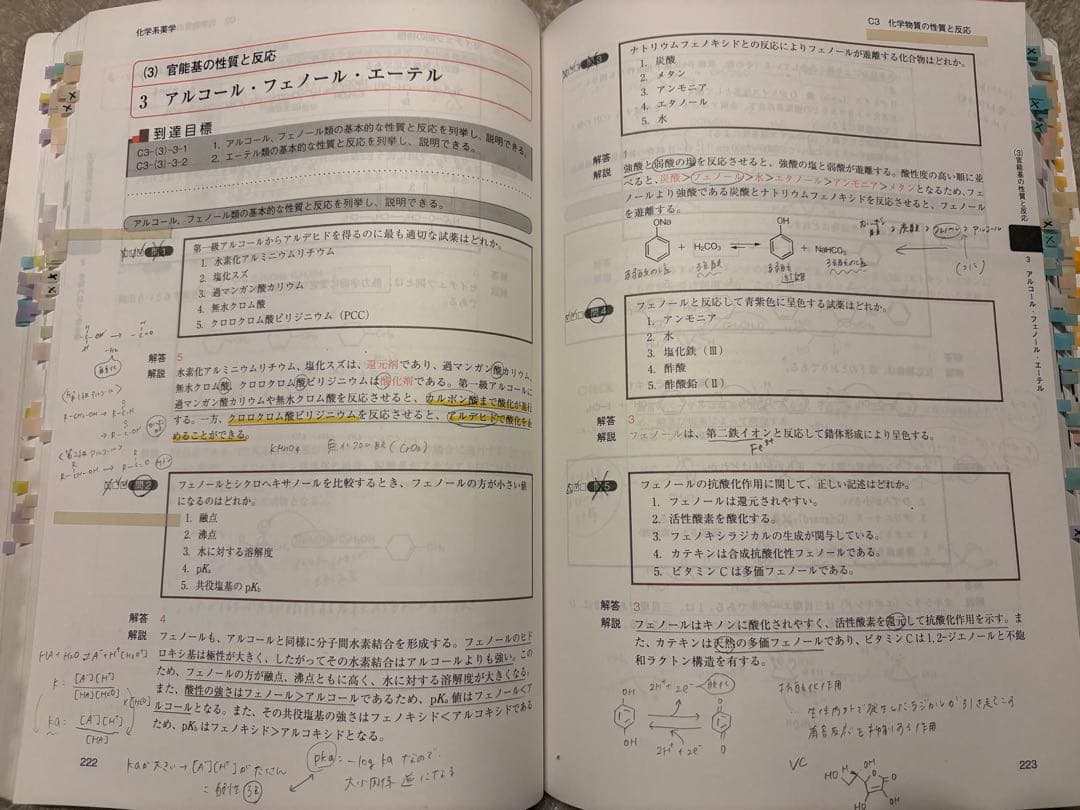 化学系薬学
(3) 官能基の性質と反応
3 アルコール・フェノール・エーテル
到達目標
C3-(3)-3-1 1. アルコール、フェノール類の基本的な性質と反応を列挙し、説明できる。
C3-(3)-3-2 2. エーテル類の基本的な性質と反応を列挙し、説明できる。
アルコール、フェノール類の基本的な性質と反応を列挙し、説明できる。
問1
第一級アルコールからアルデヒドを得るのに最も適切な試薬はどれか。
1. 水素化アルミニウムリチウム
2. 塩化スズ
3. 過マンガン酸カリウム
4. 無水クロム酸
5. クロロクロム酸ピリジニウム (PCC)
解答 5
解説 水素化アルミニウムリチウム、塩化スズは、還元剤であり、過マンガン酸カリウム、
無水クロム酸、クロロクロム酸ピリジニウムは酸化剤である。第一級アルコールに
過マンガン酸カリウムや無水クロム酸を反応させると、カルボン酸まで酸化が進行
する。一方、クロロクロム酸ピリジニウムを反応させると、アルデヒドで酸化を止
めることができる。
KMnO4 (CrO3)
問2
フェノールとシクロヘキサノールを比較するとき、フェノールの方が小さい値
になるのはどれか。
1. 融点
2. 沸点
3. 水に対する溶解度
4. pKa
5. 共役塩基のpKb
解答 4
解説 フェノールも、アルコールと同様に分子間水素結合を形成する。フェノールのヒド
ロキシ基は極性が大きく、したがってその水素結合はアルコールよりも強い。この
ため、フェノールの方が融点、沸点ともに高く、水に対する溶解度が大きくなる。
また、酸性の強さはフェノール>アルコールであるため、pKa値はフェノール<ア
ルコールとなる。また、その共役塩基の強さはフェノキシド<アルコキシドである
ため、pKbはフェノキシド>アルコキシドとなる。
pka = -log ka なので
大小関係 逆になる
222
C3 化学物質の性質と反応
問3
ナトリウムフェノキシドとの反応によりフェノールが遊離する化合物はどれか。
1. 炭酸
2. メタン
3. アンモニア
4. エタノール
5. 水
解答 1
解説 強酸と弱酸の塩を反応させると、強酸の塩と弱酸が遊離する。酸性度の高い順に並
べると、炭酸>フェノール>水>エタノール>アンモニア>メタンとなるため、フェ
ノールより強酸である炭酸とナトリウムフェノキシドを反応させると、フェノール
を遊離する。
ONa OH
+ H2CO3 + NaHCO3
問4
フェノールと反応して青紫色に呈色する試薬はどれか。
1. アンモニア
2. 水
3. 塩化鉄 (Ⅲ)
4. 酢酸
5. 酢酸鉛 (Ⅱ)
解答 3
解説 フェノールは、第二鉄イオンと反応して錯体形成により呈色する。
Fe3+
問5
フェノールの抗酸化作用に関して、正しい記述はどれか。
1. フェノールは還元されやすい。
2. 活性酸素を酸化する。
3. フェノキシラジカルの生成が関与している。
4. カテキンは合成抗酸化性フェノールである。
5. ビタミンCは多価フェノールである。
解答 3
解説 フェノールはキノンに酸化されやすく、活性酸素を還元して抗酸化作用を示す。ま
た、カテキンは天然の多価フェノールであり、ビタミンCは1,2-ジエノールと不飽
和ラクトン構造を有する。
2H+ + 2e-
OH O
OH O
2H+ + 2e-
抗酸化作用
VC
HO
HO OH
223
(3) 官能基の性質と反応
3 アルコール・フェノール・エーテル